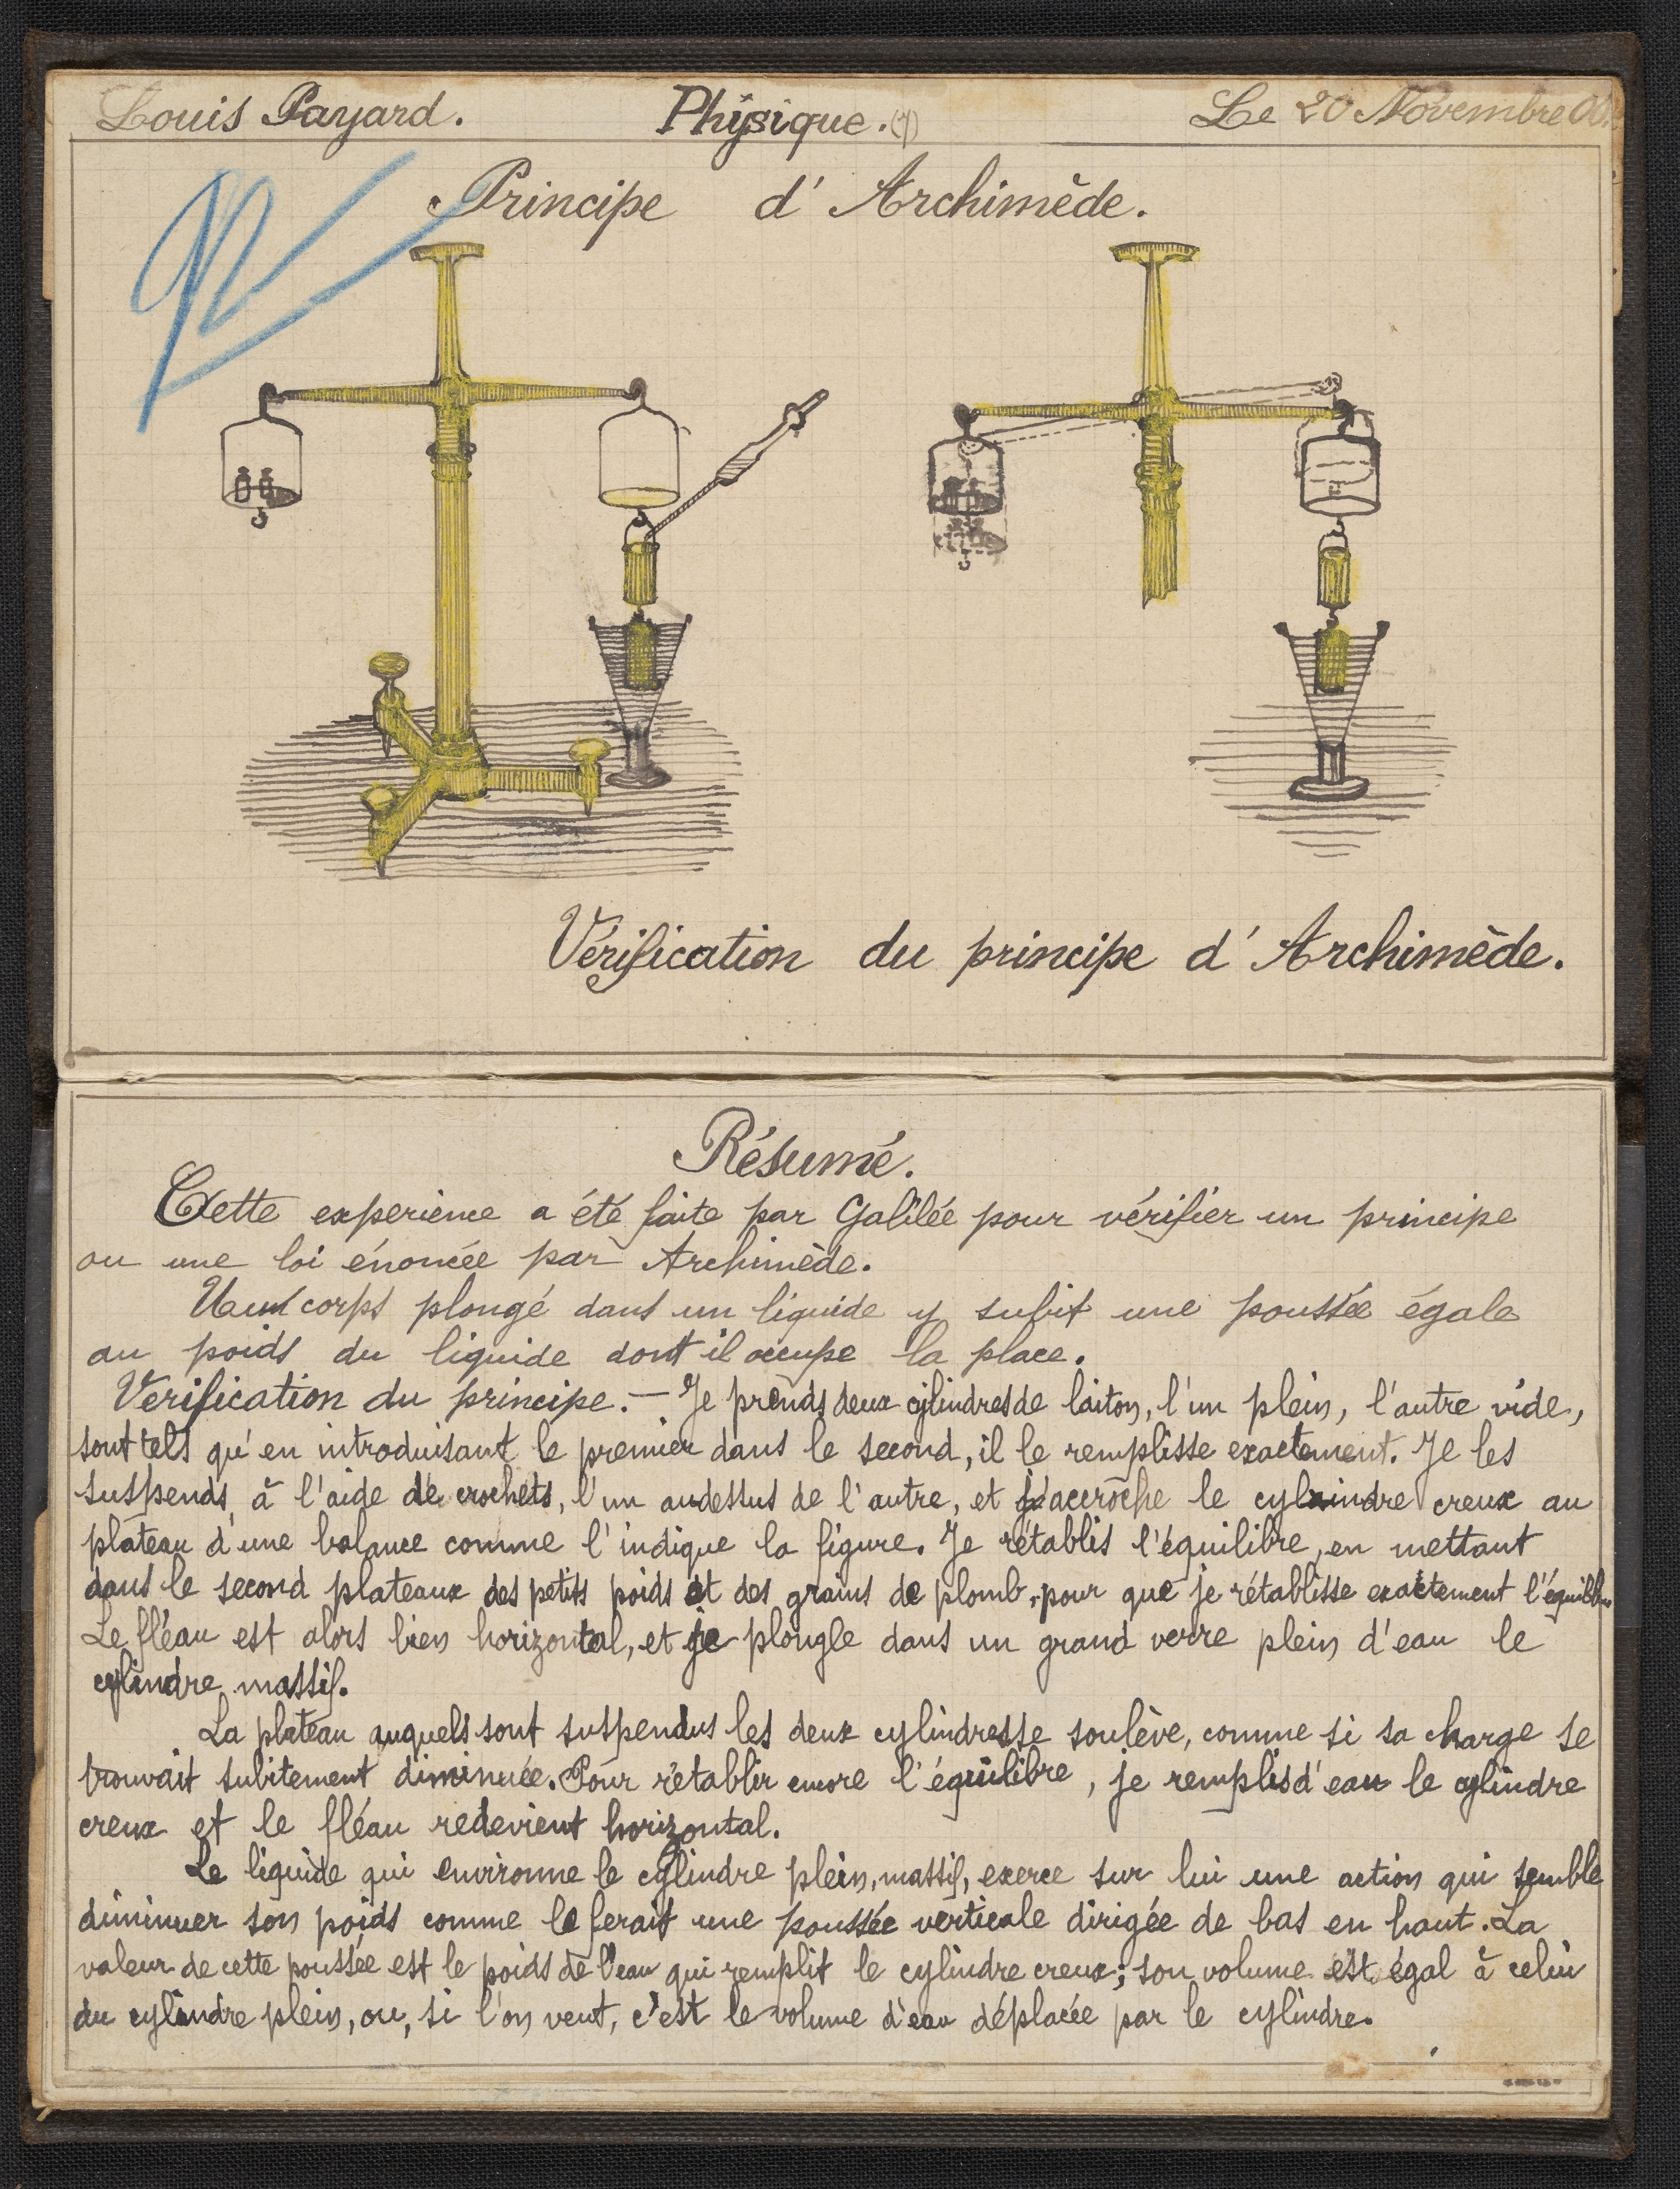 Louis Payard. Physique. Le 20 Novembre
Principe d'Archimède.
Vérification du principe d'Archimède.
Résumé.
Cette experience a été faite par Galilée pour vérifier un principe
ou une loi énoncée par Archimède.
corps plongé dans un liquide y subit une poussée égale
au poids du liquide dont il occupe la place.
Verification du principe. — Je prends deux cylindres de laiton, l'un plein, l'autre vide,
sont tels qu'en introduisant le premier dans le second, il le remplisse exactement. Je les
suspends, à l'aide de crochets, l'un audessus de l'autre, et j'accroche le cylindre creux au
plateau d'une balance comme l'indique la figure. Je rétablis l'équilibre, en mettant
dans le second plateaux des petits poids et des grains de plomb, pour que je rétablisse exactement l'équilibre
Le fléau est alors bien horizontal, et je plongle dans un grand verre plein d'eau le
cylindre massif.
La plateau auquels sont suspendus les deux cylindres se soulève, comme si sa charge se
trouvait subitement diminuée. Pour rétablir encore l'équilibre, je remplis d'eau le cylindre
creux et le fléau redevient horizontal.
Le liquide qui environne le cylindre plein, massif, exerce sur lui une action qui semble
diminuer son poids comme le ferait une poussée verticale dirigée de bas en haut. La
valeur de cette poussée est le poids de l'eau qui remplit le cylindre creux; son volume est égal à celui
du cylindre plein, ou, si l'on veut, c'est le volume d'eau déplacée par le cylindre.